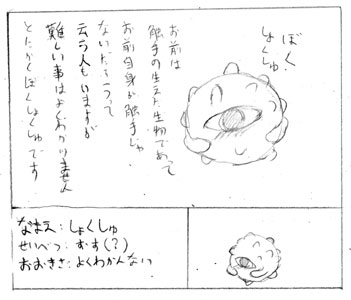 ぼく、
しょくしゅ
お前は
触手の生えた生物であって
お前自身が触手じゃ
ないだろうって
云う人もいますが
難しい事はよくわかりません
とにかくぼくしょくしゅです
なまえ：しょくしゅ
せいべつ：むす(?)
おおきさ：よくわかんない